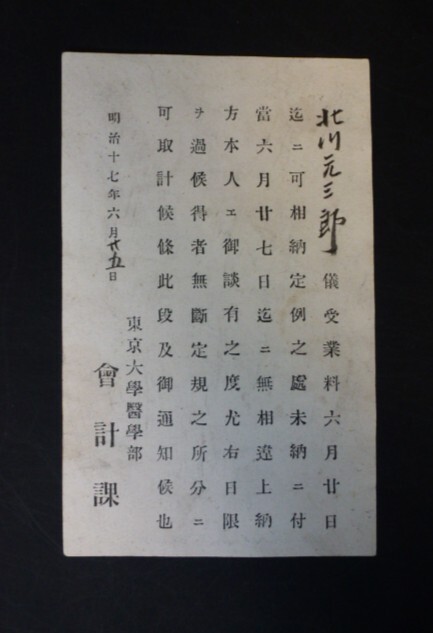 北川元三郎儀受業料六月廿日
迄ニ可相納定例之處未納ニ付
當六月廿七日迄ニ無相違上納
方本人エ御談有之度尤右日限
ヲ過候得者無斷定規之所分ニ
可取計候條此段及御通知候也
明治十七年六月廿五日
東京大學醫學部
會計課